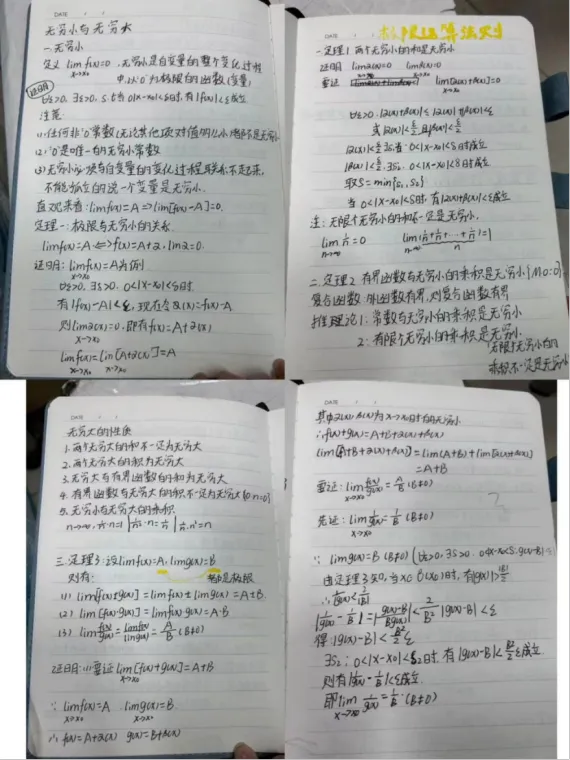 DATE
无穷小与无穷大
一.无穷小
定义 lim f(x)=0,无穷小是自变量的整个变化过程
x→x₀ 中,以0为极限的函数(变量)
证明
∀ε>0, ∃δ>0, s.t当0<|x-x₀|<δ时,有|f(x)|<ε成立
注意:
(1)任何非'0'常数(无论其他项对值的
都不是无穷小
(2)'0'是唯一的无穷小常数
(3)无穷小必须与自变量的变化过程联系不起来,
不能孤立的说一个变量是无穷小.
直观来看: lim f(x)=A ⟹ lim[f(x)-A]=0.
定理一:极限与无穷小的关系.
lim f(x)=A ⟺ f(x)=A+α, lim α=0.
证明: lim f(x)=A为例
x→x₀
∀ε>0, ∃δ>0, 0<|x-x₀|<δ时.
有|f(x)-A|<ε, 现在令α(x)=f(x)-A
则lim α(x)=0.即有f(x)=A+α(x)
x→x₀
lim f(x)=lim[A+α(x)]=A
x→x₀ x→x₀
DATE
极限运算法则
一定理1 两个无穷小的和是无穷小
证明 lim α(x)=0 lim β(x)=0
x→x₀ x→x₀
要证 lim[α(x)+β(x)]=0
x→x₀
∀ε>0.|α(x)+β(x)|≤|α(x)|+|β(x)|<ε
或|α(x)|<ε/2且|β(x)|<ε/2
|α(x)|<ε/2 ∃δ₁ 当:0<|x-x₀|<δ时成立
|β(x)|<ε/2.∃δ₂. 0<|x-x₀|<δ时成立
取δ=min{δ₁,δ₂}
当 0<|x-x₀|<δ时,有|α(x)+β(x)|<ε成立
注: 无限个无穷小的和不一定是无穷小.
lim 1/n=0 lim(1/n+1/n+…+1/n)=1
n→∞ n→∞ n
二.定理2 有界函数与无穷小的乘积是无穷小{M·0=0}
复合函数 外函数有界,则复合函数有界
推理论1: 常数与无穷小的乘积是无穷小
2: 有限个无穷小的乘积是无穷小.
(无限个无穷小的
乘积不一定是无穷小)
DATE
无穷大的性质
1.两个无穷大的和不一定为无穷大
2.两个无穷大的积为无穷大
3.无穷大与有界函数的和为无穷大
4.有界函数与无穷大的积不一定为无穷大{0·n=0}
5.无穷小与无穷大的乘积
三.定理3:设lim f(x)=A, lim g(x)=B
则有:
(1) lim[f(x)±g(x)]=lim f(x)±lim g(x)=A±B.
(2) lim[f(x)·g(x)]=lim f(x)·lim g(x)=A·B
(3) lim f(x)/g(x)=lim f(x)/lim g(x)=A/B (B≠0)
证明:(1)要证lim[f(x)+g(x)]=A+B
x→x₀
∵ lim f(x)=A lim g(x)=B
x→x₀ x→x₀
∴ f(x)=A+α(x) g(x)=B+β(x)
DATE
其中α(x),β(x)为x→x₀时的无穷小
∴f(x)+g(x)=A+B+α(x)+β(x)
lim[A+B+α(x)+β(x)]=lim(A+B)+lim[α(x)+β(x)]
=A+B
要证:lim f(x)/g(x)=A/B (B≠0)
x→x₀
先证:lim 1/g(x)=1/B (B≠0)
x→x₀
∵ lim g(x)=B (B≠0) (∀ε>0, ∃δ>0. 0<|x-x₀|<δ. |g(x)-B|<
由定理3知,当x∈Ů(x₀)时,有|g(x)|>|B|/2
∴ 1/|g(x)|<2/|B|
|1/g(x)-1/B|=|g(x)-B/Bg(x)|<2/B²|g(x)-B|<ε
得:|g(x)-B|<B²/2 ε
∃δ₂: 0<|x-x₀|<δ₂时. 有|g(x)-B|<B²/2 ε成立.
则有|1/g(x)-1/B|<ε成立.
即lim 1/g(x)=1/B.(B≠0)
x→x₀